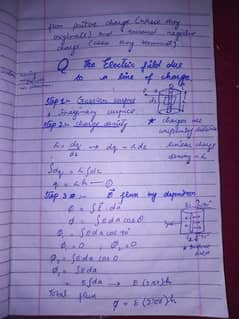 from positive charge (where they
originate) and toward negative
charge (where they terminate).
Q The Electric field due
to a line of charge
Step 1:- Gaussian surface
* Imaginary surface
Step 2:- charge density
* charges are
uniformly
λ = dq/dx → dq = λdx
linear charge
density = λ
∫dq = λ∫dx
q = λh — ①
Step 3:- flux by
Φ = ∫E.da
Φ = ∫E da cosθ
Φ₁ = ∫E da cos 90°
Φ₁ = 0 , Φ₂ = 0
Φ₃ = ∫E da cos 0
Φ₃ = ∫E da
= E∫da → E (2πr)h
Total flux
Φ = E (2πr)h